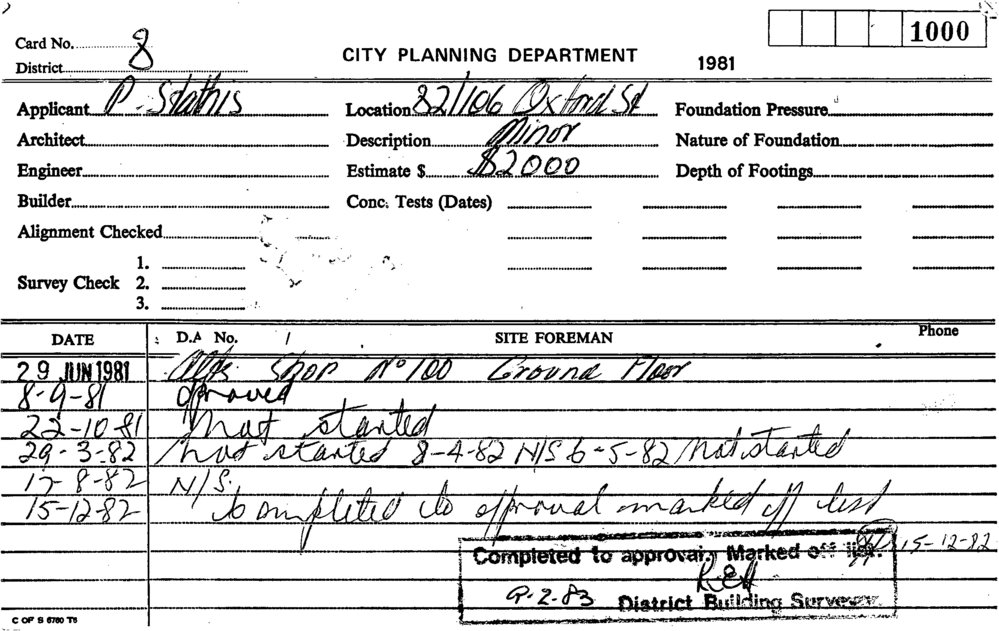 1000
Card No. 8
CITY PLANNING DEPARTMENT
1981
District
Applicant P. Stathis Location 82/106 Oxford St Foundation Pressure
Architect Description Minor Nature of Foundation
Engineer Estimate $ $2000 Depth of Footings
Builder Conc. Tests (Dates)
Alignment Checked
1.
Survey Check 2.
3.
DATE D.A No. / SITE FOREMAN Phone
29 JUN 1981 Alts Shop No 100 Ground Floor
8-9-81 approved
22-10-81 Not started
29-3-82 Not started 8-4-82 N/S 6-5-82 Not started
17-8-82 N/S.
15-12-82 Completed to approval marked off list
15-12-82
Completed to approval. Marked off list.
9-2-83 District Building Surveyor.
C OF S 6760 T6